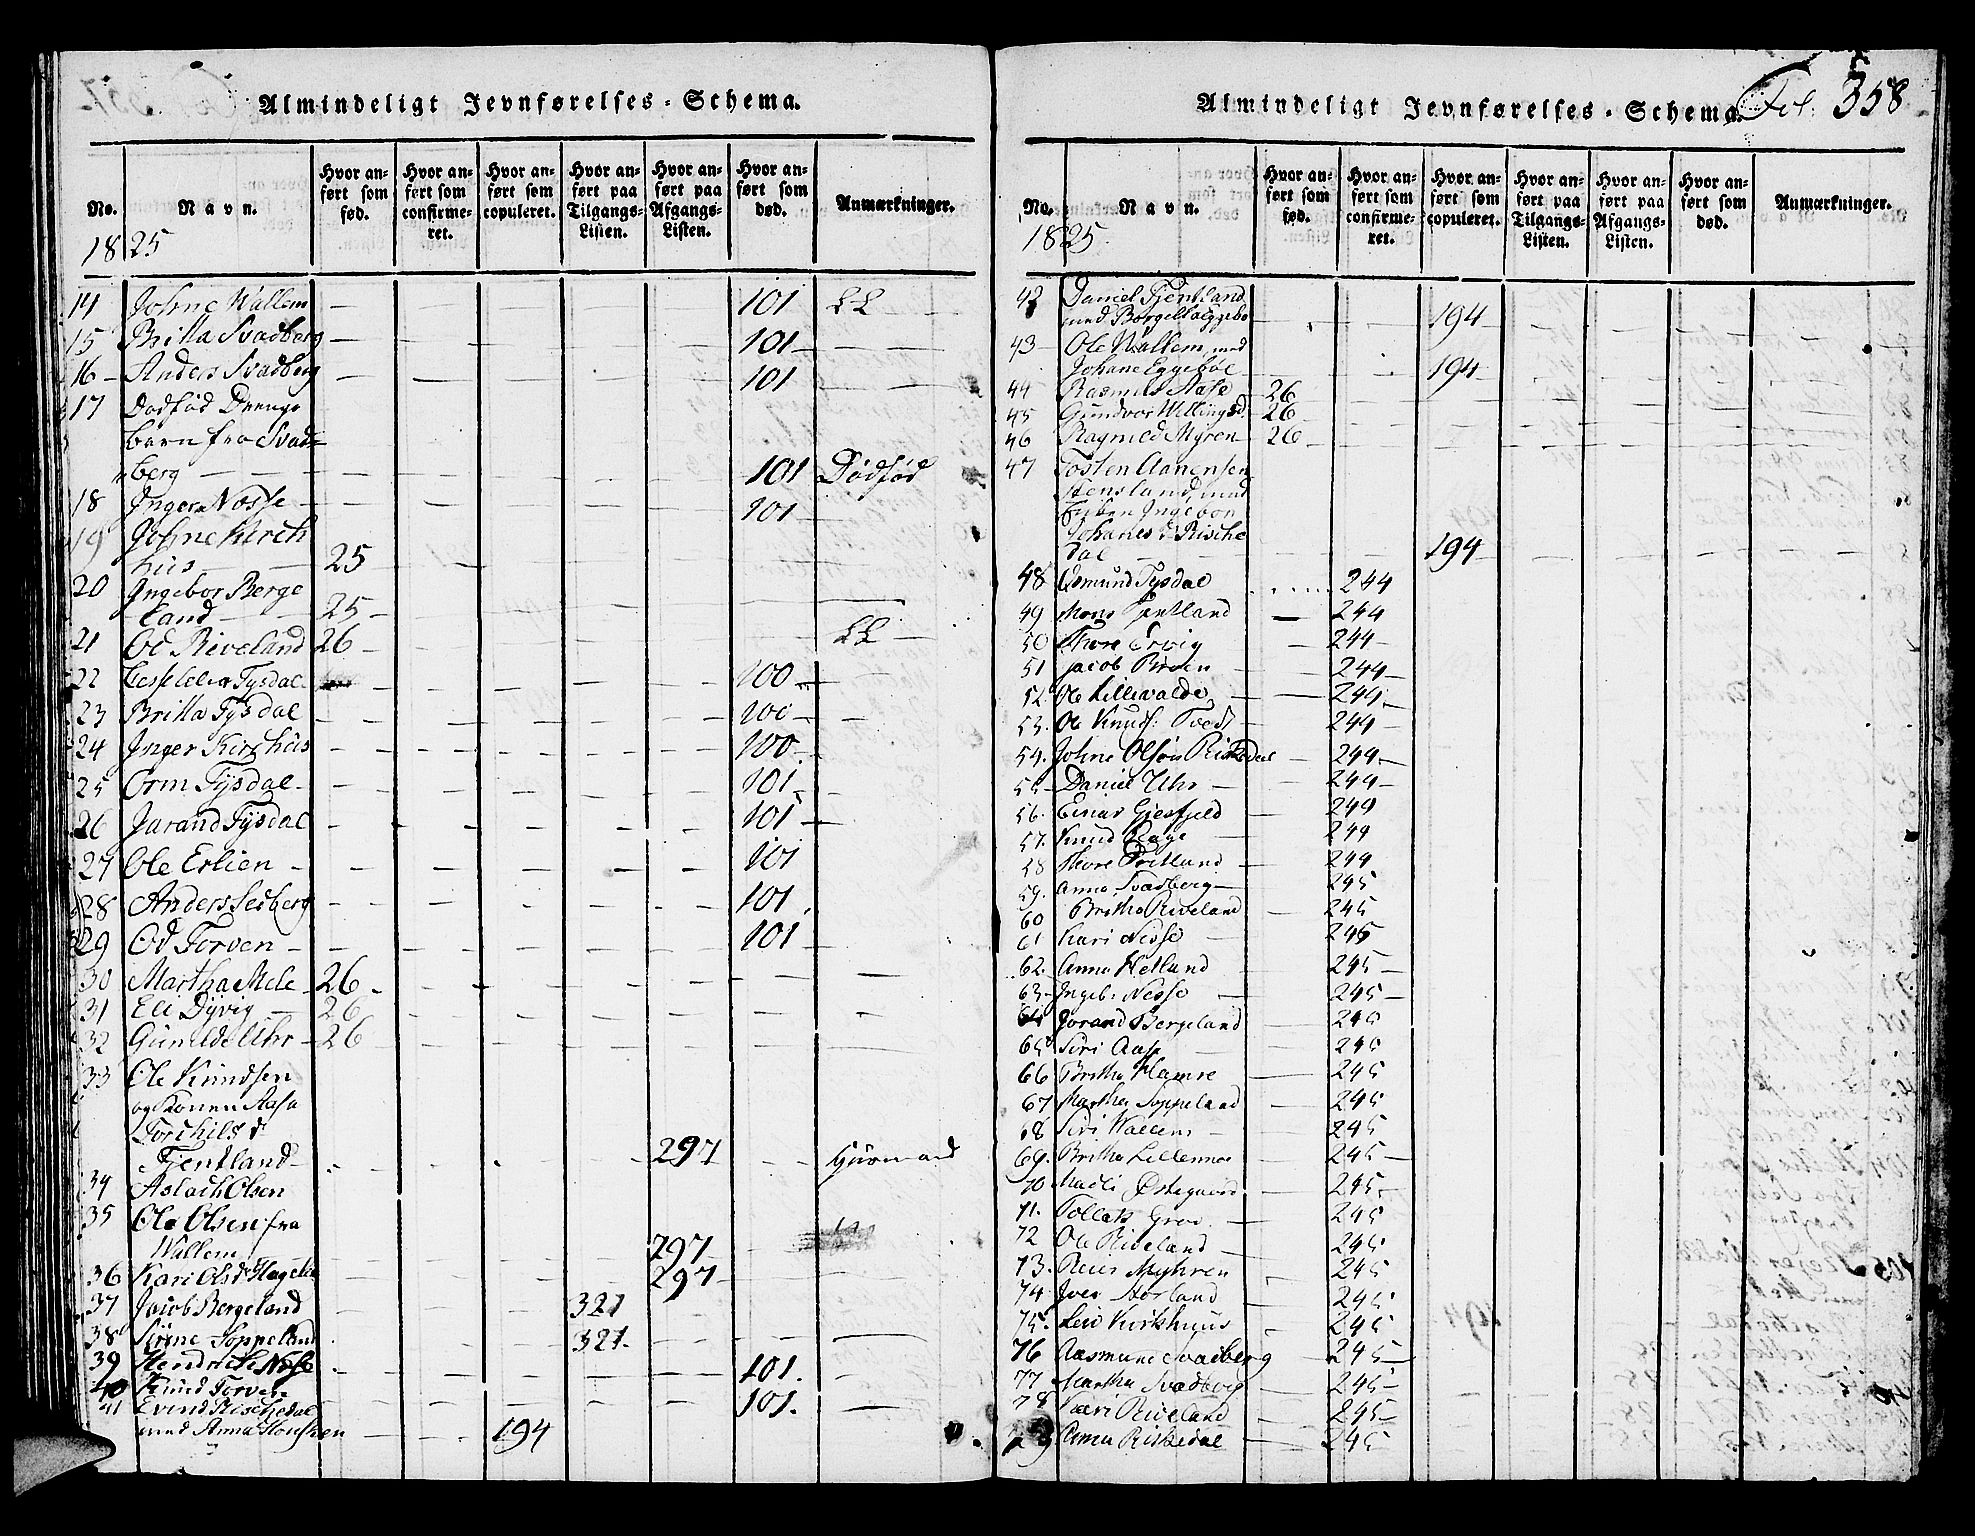 Almindeligt Jevnførelses-Schema.
No.
Navn.
Hvor anført som fød.
Hvor anført som confirmeret.
Hvor anført som copuleret.
Hvor anført paa Tilgangs-Listen.
Hvor anført paa Afgangs-Listen.
Hvor anført som død.
Anmærkninger.
1825
14 Johne Wallem 101
15 Britta Svadberg 101
16 Anders Svadberg 101
17 Dødfød Drenge
barn fra Svad-
berg 101 Dødfød
18 Inger Nesse 101
19 Johne Kirch
hus 25
20 Ingebor Berge
land 25
21 Od Riveland 26
22 Tysdal 100
23 Britta Tysdal 100
24 Inger Kirchhus 100
25 Orm Tysdal 101
26 Jarand Tysdal 101
27 Ole Erlien 101
28 Anders Sedberg 101
29 Od Torven 101
30 Martha Mele 26
31 Eli Dyvig 26
32 Gunilde Uhr 26
33 Ole Knudsen
og Konen Aasa
Torchilsd
Fjentland 297
34 Aslach Olsen
35 Ole Olsen fra
Wallem 297
36 Kari Olsd 297
37 Jacob Bergeland 321
38 Sirine Soppeland 321
39 Hendrich Nesse 101
40 Knud Torven 101
41 Evind Rischedal
med Anna 194
Almindeligt Jevnførelses-Schema.
Fol. 358
No.
Navn.
Hvor anført som fød.
Hvor anført som confirmeret.
Hvor anført som copuleret.
Hvor anført paa Tilgangs-Listen.
Hvor anført paa Afgangs-Listen.
Hvor anført som død.
Anmærkninger.
1825.
42 Daniel Fjentland
med 194
43 Ole Wallem med
Johane Eggebøe 194
44 Rasmus Aase 26
45 Gundvor 26
46 Ragnild Myren 26
47 Tosten Aanensen
Stensland, med
Enken Ingebor
Johanesd Rische
dal 194
48 Osmund Tysdal 244
49 Mons Fjentland 244
50 Thore Ervig 244
51 Jacob Broen 244
52 Ole Lillevalde 244
53. Ole Knuds: Tvedt 244
54. Johne Olsøn Riskedal 244
55 Daniel Uhr 244
56. Einar Giesfjeld 244
57. Knud Hage 244
58 Thore Tritland 244
59. Anna Svadberg 245
60 Britha Riveland 245
61 Kari Nesse 245
62. Anna Hetland 245
63 Ingeb: Nesse 245
64 Jorand Bergeland 245
65 Siri Aase 245
66 Britha Hamre 245
67 Martha Soppeland 245
68 Siri Wallem 245
69. Britha Lillemoe 245
70 Madli Østegaard 245
71. Tollak Groe 245
72 Ole Riveland 245
73. Myhren 245
74. Iver Størland 245
75. Leiv Kirkhuus 245
76 Aasmund Svadberg 245
77 Martha Svadberg 245
78 Kari Riveland 245
79 Anna Riskedal 245